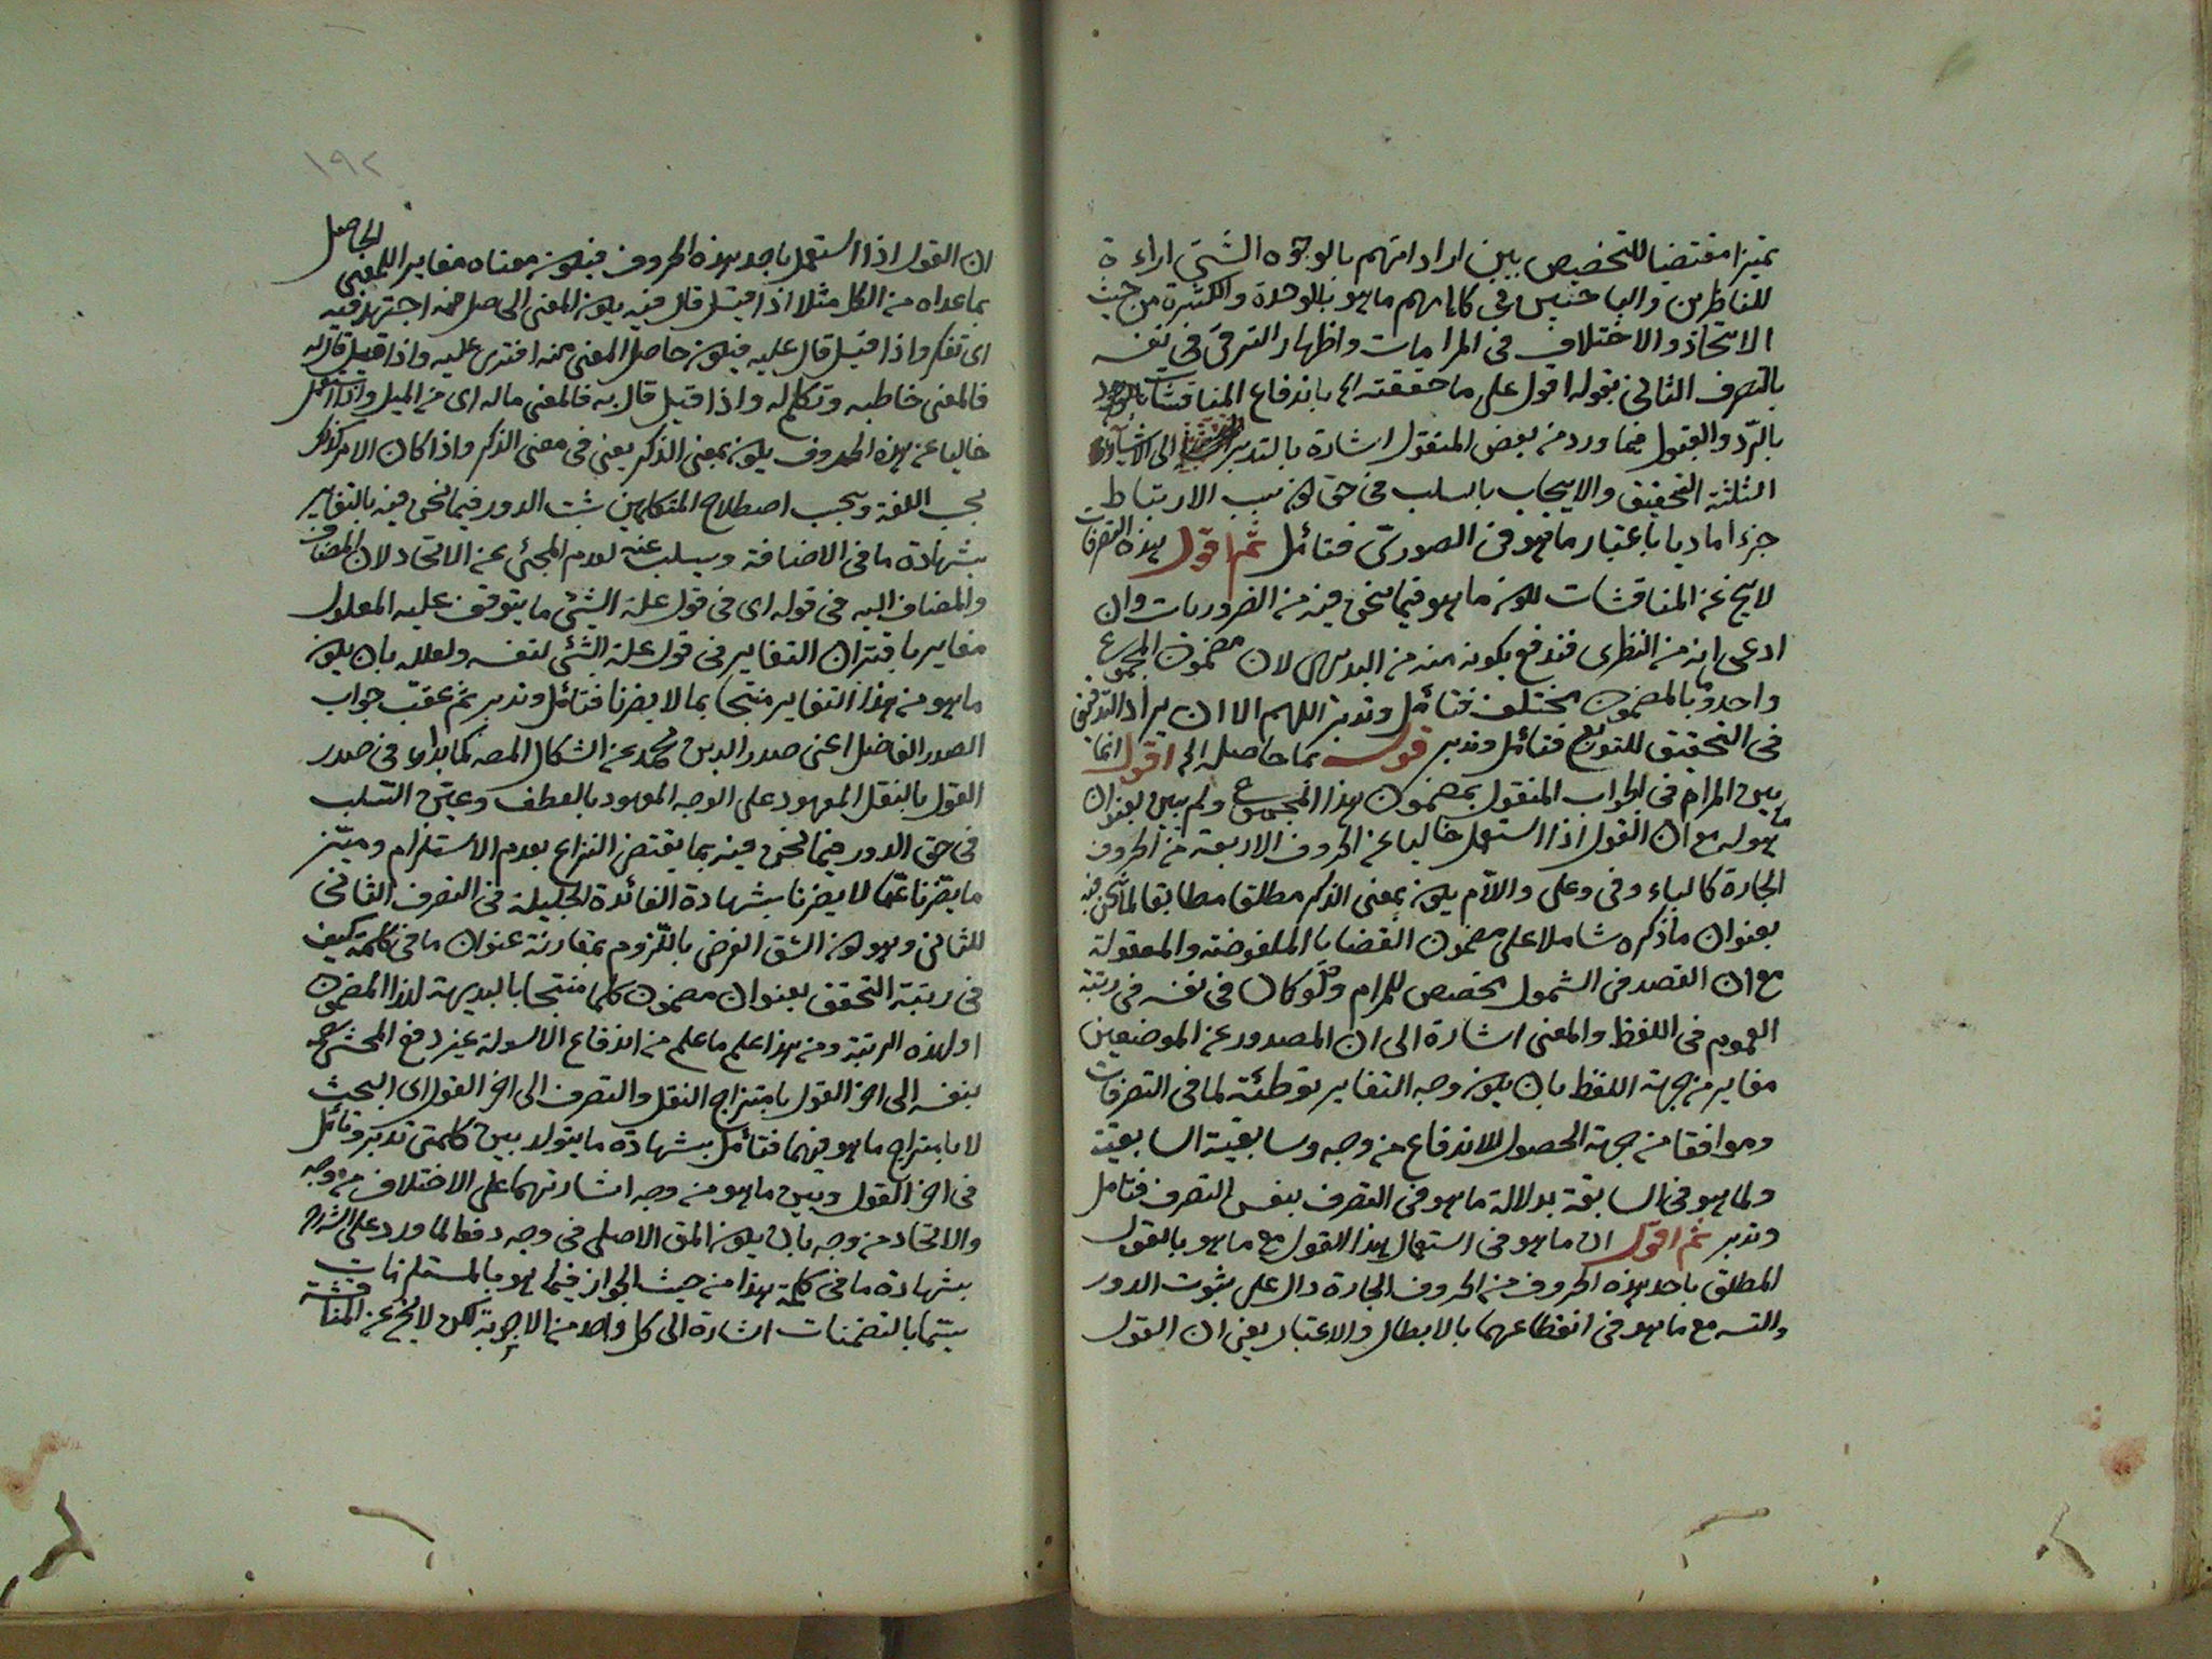 تميزا مقتضيا للتخصيص بين اراداتهم بالوجوه الشتى اراءة
للناظرين والباحثين فى كلامهم ما هو بالوحدة والكثرة من حيث
الاتحاد والاختلاف فى المرامات واظهار الترقى فى نفسه
بالتصرف الثانى بقوله اقول على ما حققته الخ باندفاع المناقشات
بالرد والقبول فيما ورد من بعض المنقول اشارة بالتدبر الى الاشياء
الثلثة التحقيق والايجاب بالسلب فى حق كون نسب الارتباط
جزءا ماديا باعتبار ما هو فى الصورتى فتأمل ثم اقول هذه التصرفات
لا يخ عن المناقشات لكون ما هو فيما نحن فيه من الضروريات وان
ادعى انه من النظرى فندفع بكونه منه من البديهى لان مضمون المجموع
واحد وبالمضمون مختلف فتأمل وتدبر اللهم الا ان يراد الترقى
فى التحقيق للتوزيع فتأمل وتدبر قوله بما حاصله الخ اقول انما
بين المرام فى الجواب المنقول بمضمون هذا المجموع ولم يبين بعنوان
ما هو له مع ان القول اذا استعمل خاليا عن الحروف الاربعة من الحروف
الجارة كالباء وفى وعلى واللام يكون بمعنى الذكر مطلقا مطابقا لما نحن فيه
بعنوان ما ذكره شاملا على مضمون القضايا الملفوضة والمعقولة
مع ان القصد فى الشمول تخصيص للمرام ولو كان فى نفسه فى رتبة
العموم فى اللفظ والمعنى اشارة الى ان المصدور عن الموضعين
مغاير من جهة اللفظ بان يكون وجه التغاير توطئة لما فى التصرفات
وموافقا من جهة الحصول للاندفاع من وجه وسابقية السابقية
ولما هو فى السابقة بدلالة ما هو فى التصرف بنفس التصرف فتأمل
وتدبر ثم اقول ان ما هو فى استعمال هذا القول مع ما هو بالقول
المطلق باحد هذه الحروف من الحروف الجارة دال على ثبوت الدور
والتسه مع ما هو فى انقطاعهما بالابطال والاعتبار يعنى ان القول
١٩٢
ان القول اذا استعمل باحد هذه الحروف فيكون معناه مغاير اللمعنى الحاصل
بما عداه من الكل مثلا اذا قيل قال فيه يكون المعنى الحاصل منه اجتهد فيه
اى تفكر واذا قيل قال عليه فيكون حاصل المعنى منه افترى عليه واذا قيل قال له
فالمعنى خاطبه وتكلم له واذا قيل قال به فالمعنى مال له اى من الميل واذا استعمل
خاليا عن هذه الحروف يكون بمعنى الذكر يعنى فى معنى الذكر واذا كان الامر كذلك
بحسب اللغة وبحسب اصطلاح المتكلمين ثبت الدور فيما نحن فيه بالتغاير
بشهادة ما فى الاضافة ويسلب عنه لعدم المجئى عن الاتحاد لان المضاف
والمضاف اليه فى قوله اى فى قول علة الشئ ما يتوقف عليه المعلول
مغاير باقتران التغاير فى قول علة الشئ لنفسه ولعلله بان يكون
ما هو من هذا التغاير منتجا بما لا يضرنا فتأمل وتدبر ثم عقب جواب
الصدر الفاضل اعنى صدر الدين محمد عن اشكال المصه كما بداء فى صدر
القول بالنقل المعهود على الوجه المعهود بالعطف وعين السلب
فى حق الدور فيما نحن فيه بما يقتضى النزاع بعدم الاستلزام وميز
ما يضرنا عما لا يضرنا بشهادة الفائدة الجليلة فى التصرف الثانى
للثانى وهو كون الشق الفرض باللزوم بمقارنة عنوان ما فى كلمة كيف
فى رتبة التحقق بعنوان مضمون كلما منتجا بالبديهة لهذا المضمون
او لهذه الرتبة ومن هذا علم ما علم من اندفاع الاسولة عند دفع المحشى
بنفسه الى اخر القول بامتزاج النقل والتصرف الى اخر القول اى البحث
لا بامتزاج ما هو فيهما فتأمل بشهادة ما يتولد بين كلمتى تدبر وتأمل
فى اخر القول وبين ما هو من وجه اشارتهما على الاختلاف من وجه
والاتحاد من وجه بان يكون المق الاصلى فى وجه دفعا لما ورد على الشراح
بشهادة ما فى كلمة هذا من حيث الجواز فيما هو بالمستلزمات
سيما بالتضمنات اشارة الى كل واحد من الاجوبة لكن لا يخ عن المناقشة